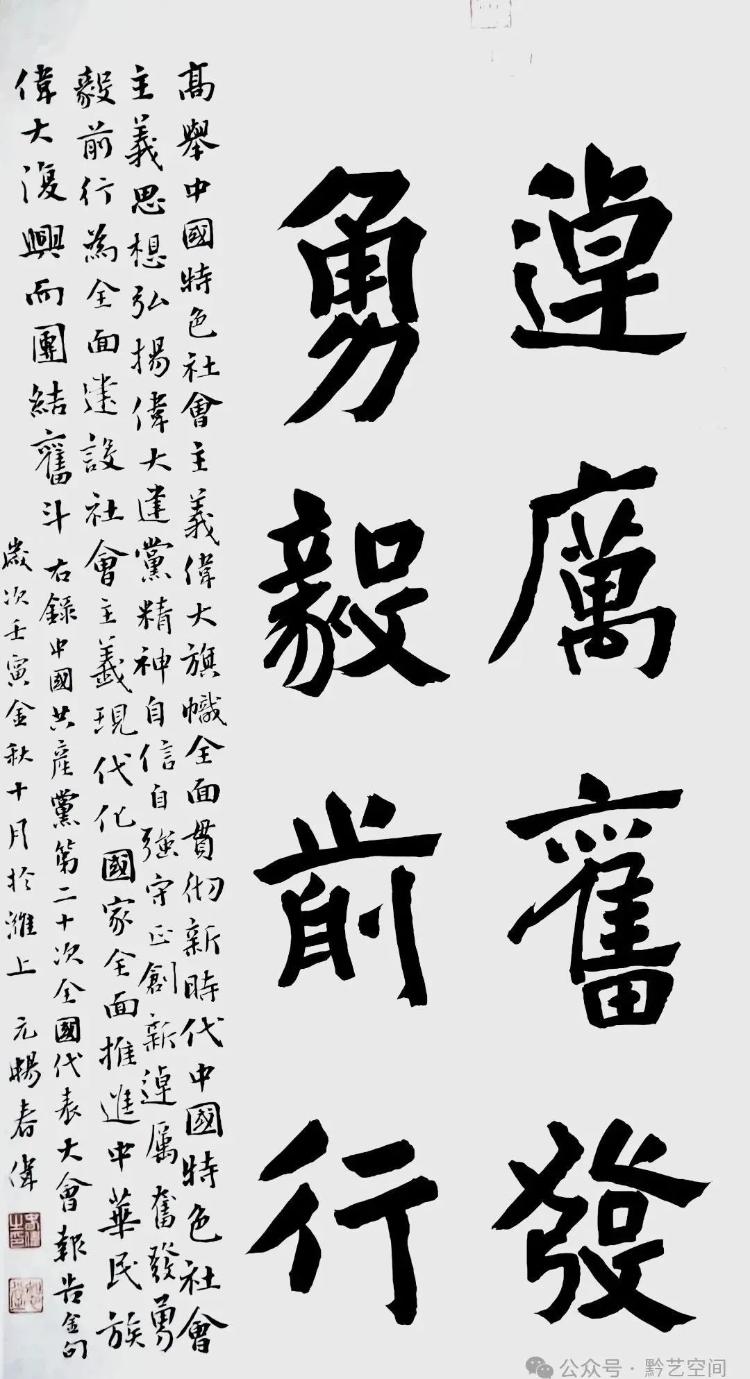 逴厲奮發
勇毅前行
高舉中國特色社會主義偉大旗幟全面貫彻新時代中國特色社會
主義思想弘揚偉大建黨精神自信自強守正創新逴厲奮發勇
毅前行為全面建設社會主義現代化國家全面推進中華民族
偉大復興而團結奮斗 右錄中國共產黨第二十次全國代表大會報告金句
歲次壬寅金秋十月於濰上 元暘春偉
公众号·黔艺空间